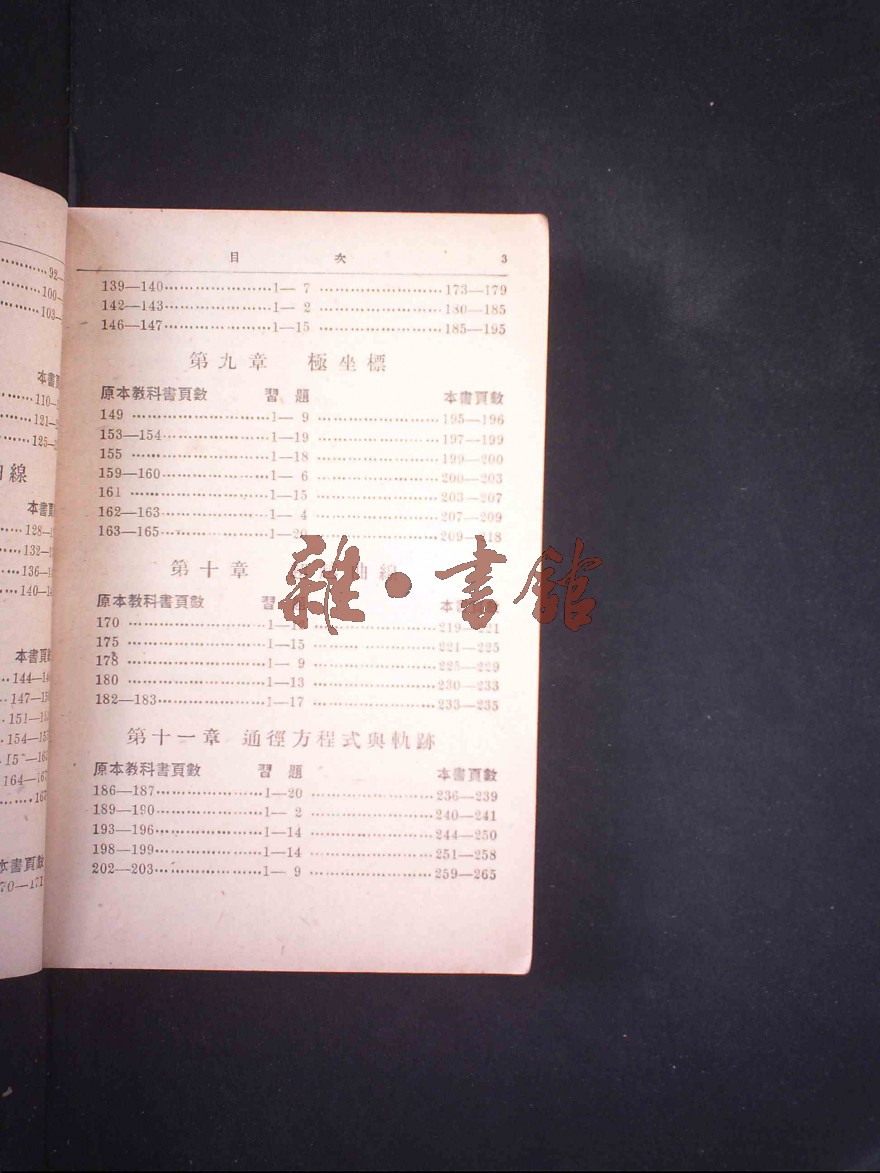 目 次 3
139—140 1— 7 173—179
142—143 1— 2 180—185
146—147 1—15 185—195
第九章 極坐標
原本教科書頁數 習題 本書頁數
149 1— 9 195—196
153—154 1—19 197—199
155 1—18 199—200
159—160 1— 6 200—203
161 1—15 203—207
162—163 1— 4 207—209
163—165 1—20 209—218
第十章 曲線
原本教科書頁數 習題 本書頁數
170 219—221
175 1—15 221—225
178 1— 9 225—229
180 1—13 230—233
182—183 1—17 233—235
第十一章 通徑方程式與軌跡
原本教科書頁數 習題 本書頁數
186—187 1—20 236—239
189—190 1— 2 240—241
193—196 1—14 244—250
198—199 1—14 251—258
202—203 1— 9 259—265
雜·書館
92—
100—
103—
本書頁
110—
121—
125—
線
本書頁
128—
132—
136—
140—
本書頁
144—
147—
151—
154—
164—167
167
本書頁數
70—171